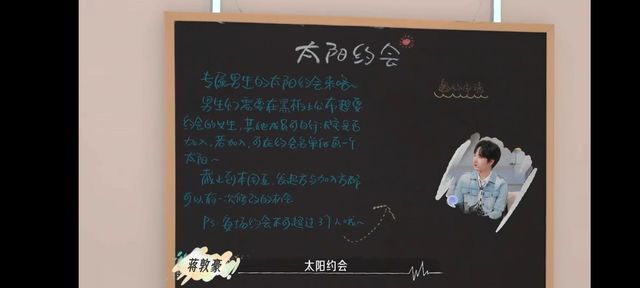 太阳约会
专属男生的太阳约会来咯～
男生们需要在黑板上公布想要
约会的女生，其他成员可自行决定是否
加入，若加入，可在约会名单后画一个
太阳～
截止到本周五，发起方与加入方都
可以有一次修改的机会
Ps：每场约会不可超过3个人哦～
蒋敦豪
太阳约会